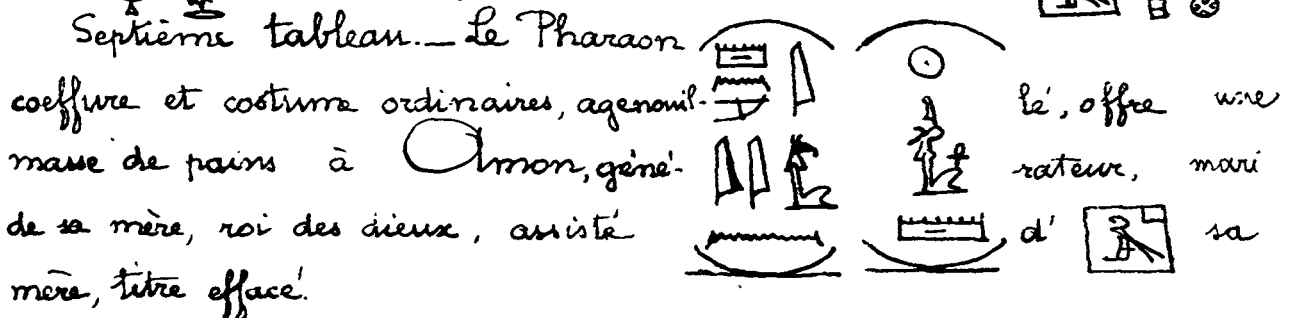 Septième tableau. _ Le Pharaon
coeffure et costume ordinaires, agenouil- lé, offre une
masse de pains à Amon, géné- rateur, mari
de sa mère, roi des dieux, assisté d' sa
mère, titre effacé.